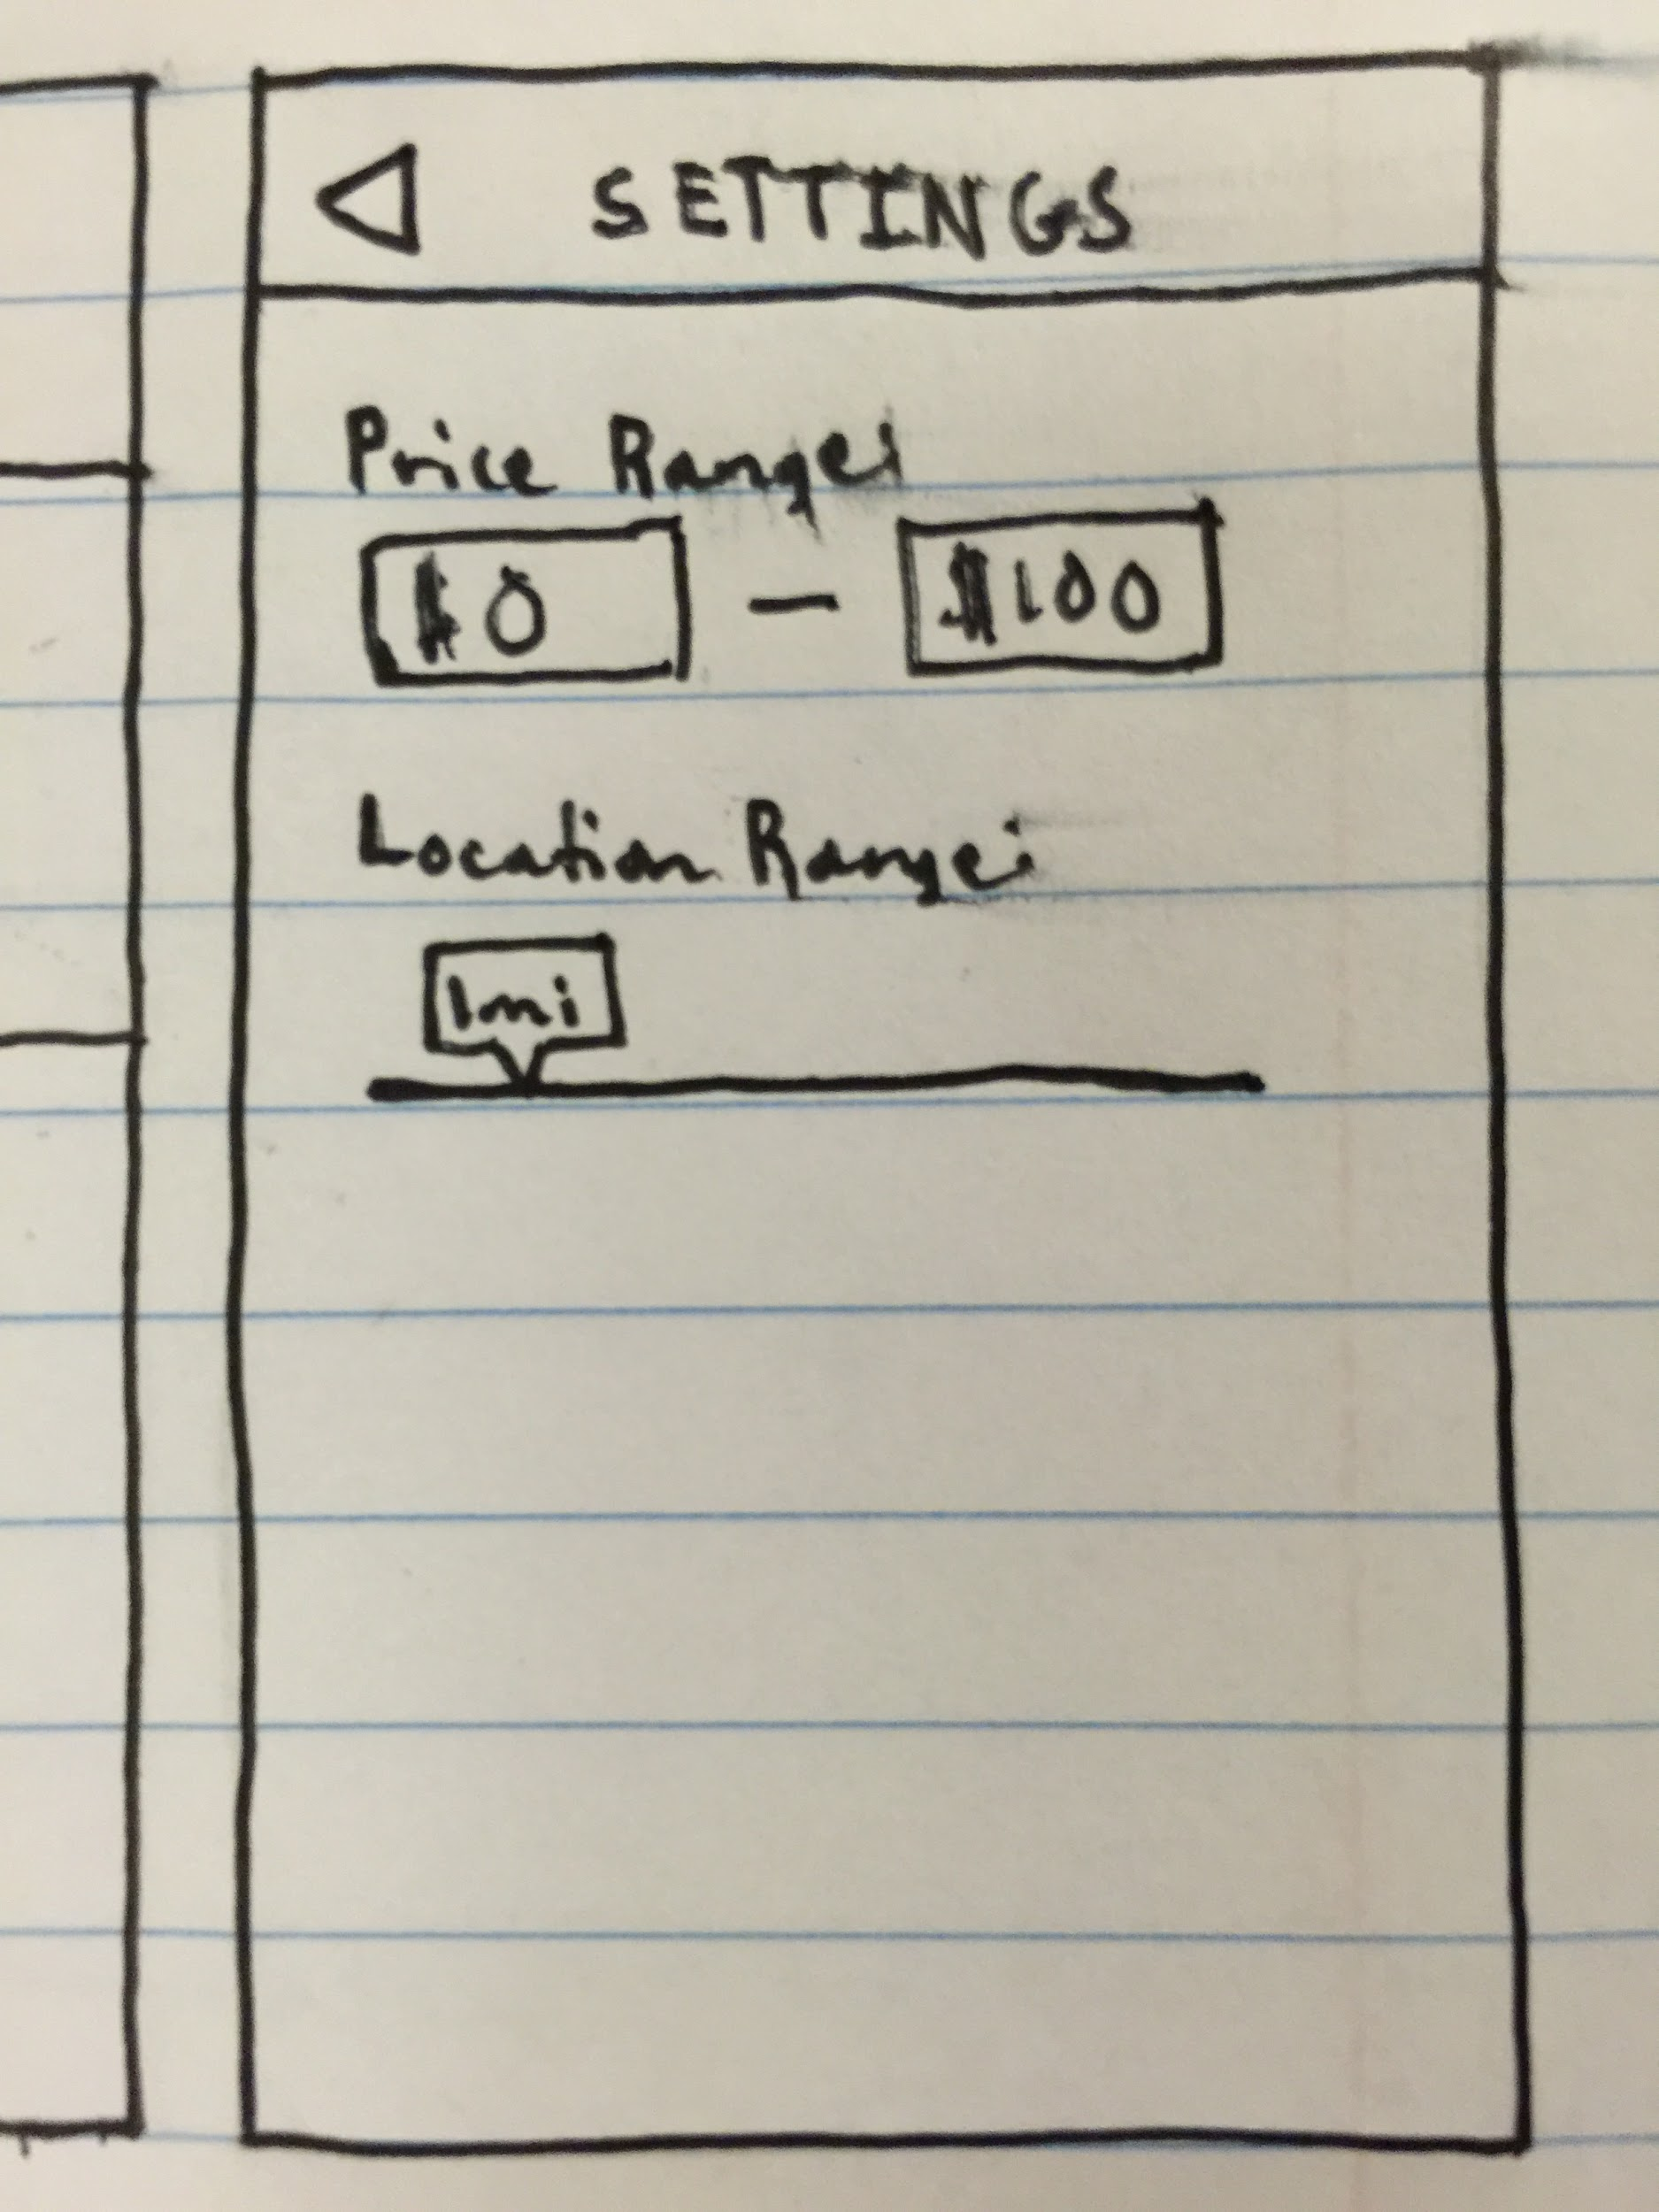 SETTINGS
Price Range:
$0 - $100
Location Range:
1mi